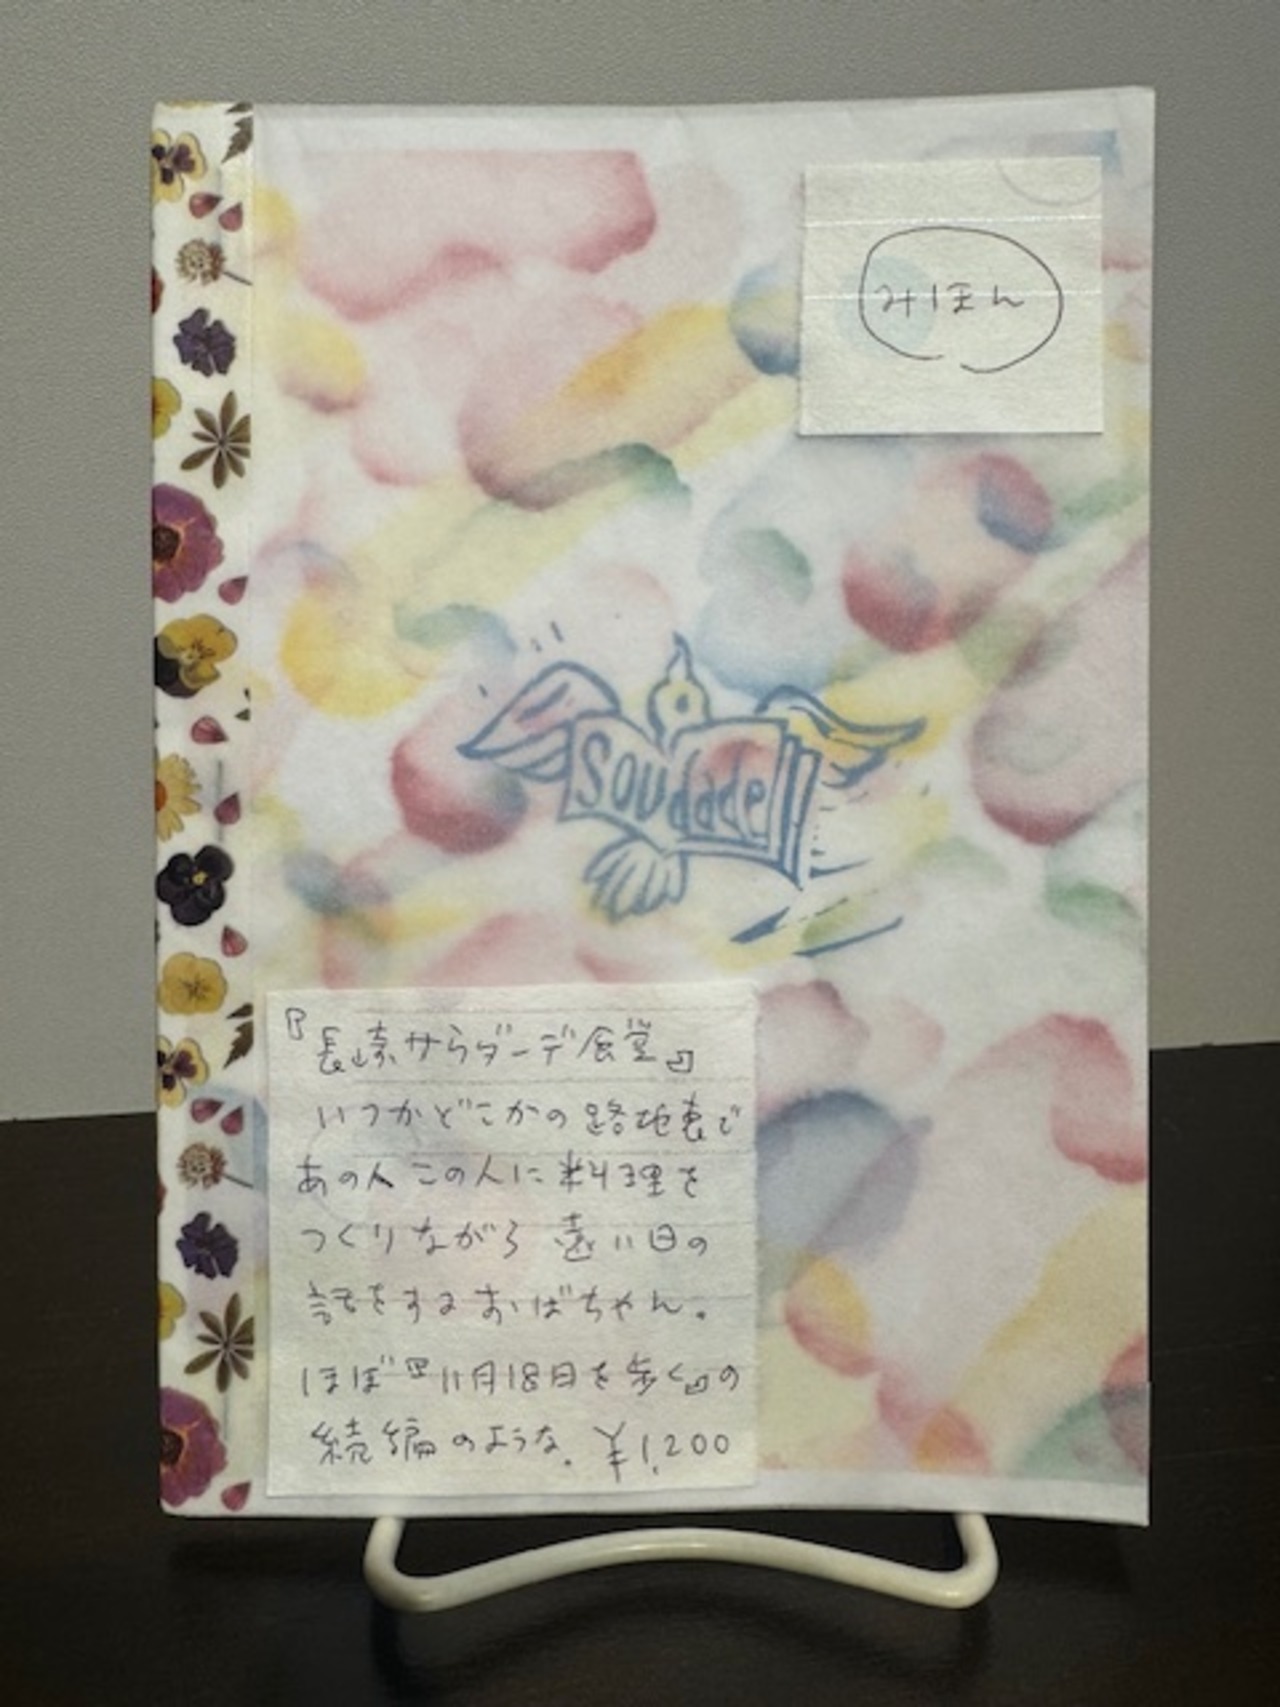 みほん
soudade
『長崎サウダーデ食堂』
いつかどこかの路地裏で
あの人この人に料理を
つくりながら遠い日の
話をするおばちゃん。
ほぼ『11月18日を歩く』の
続編のような。¥1,200